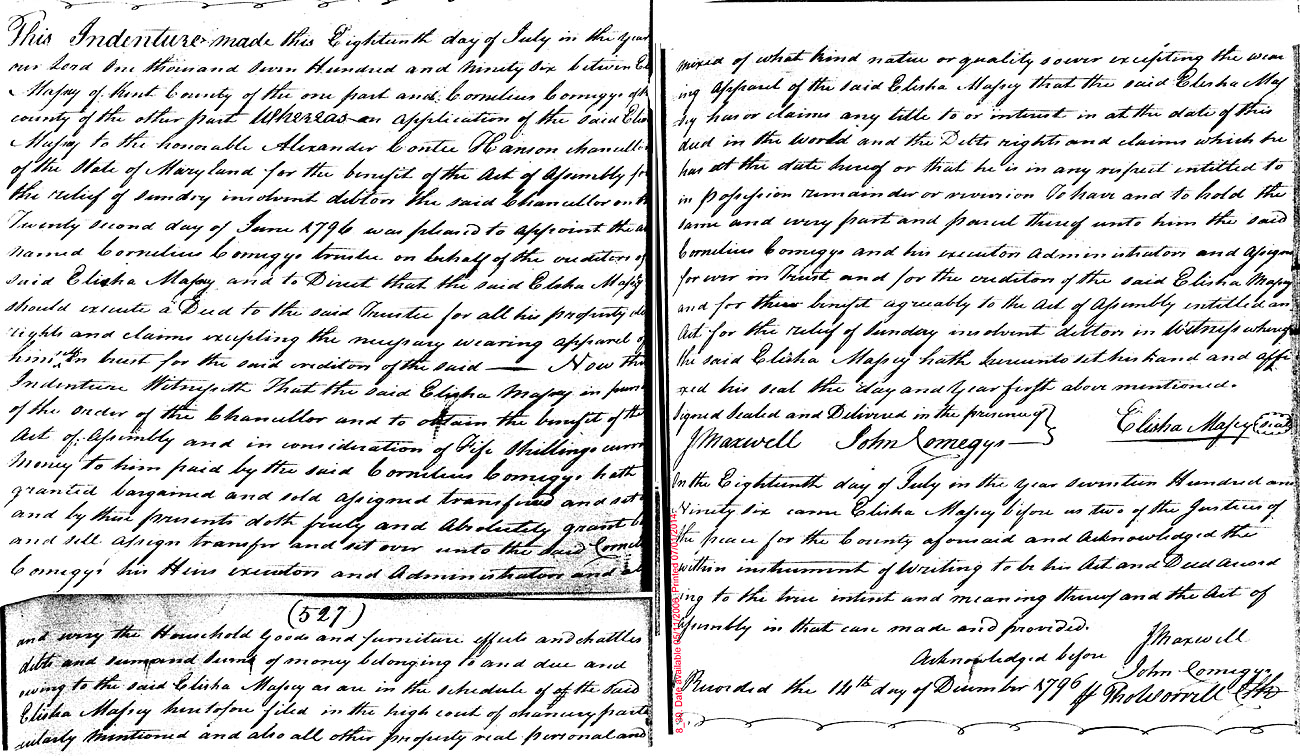 This Indenture made this Eighteenth day of July in the year
our Lord One thousand seven Hundred and ninety six between El
Massey of Kent County of the one part and Cornelius Comegys of th
county of the other part Whereas on application of the said Elish
Massey to the honorable Alexander Contee Hanson chancellor
of the State of Maryland for the benefit of the Act of Assembly for
the relief of sundry insolvent debtors the said Chancellor on th
Twenty second day of June 1796 was pleased to appoint the a
named Cornelius Comegys trustee on behalf of the creditors of
said Elisha Massey and to Direct that the said Elisha Massey
should execute a Deed to the said Trustee for all his property de
rights and claims excepting the necessary wearing apparel of
him in trust for the said creditors of the said — Now this
Indenture Witnesseth That the said Elisha Massey in purs
of the order of the Chancellor and to obtain the benefit of the
Act of Assembly and in consideration of Five Shillings curr
money to him paid by the said Cornelius Comegys hath
granted bargained and sold assigned transfired and set
and by these presents doth freely and Absolutely grant b
and sell assign transfer and set over unto the said Corneli
Comegys his Heirs executors and Administrators and al
(527)
and every the Household goods and furniture effects and chattles
debts and sum and Sums of money belonging to and due and
owing to the said Elisha Massey as are in the schedule of of the said
Elisha Massey heretofore filed in the high court of chancery parti
cularly mentioned and also all other property real personal and
mixed of what kind nature or quality soever excepting the wear
ing apparel of the said Elisha Massey that the said Elisha Mas
sey has or claims any title to or interest in at the date of this
deed in the world and the Debts rights and claims which he
has at the date hereof or that he is in any respect entitled to
in possession remainder or reversion To have and to hold the
same and every part and parcel thereof unto him the said
Cornelius Comegys and his executors administrators and assigns
for ever in Trust and for the creditors of the said Elisha Massey
and for their benefit agreeably to the Act of Assembly entitled an
Act for the relief of sunday insolvent debtors in Witness whereof
the said Elisha Massey hath hereunto set his hand and affi
xed his seal the day and year first above mentioned.
Signed Sealed and Delivered in the presence of
J Maxwell John Comegys
Elisha Massey seal
On the Eighteenth day of July in the year seventeen Hundred and
Ninety six came Elisha Massey before us two of the Justices of
the peace for the County aforesaid and Acknowledged the
within instrument of Writing to be his Act and Deed accord
ing to the true intent and meaning thereof and the Act of
Assembly in that case made and provided.
Acknowledged before J Maxwell
John Comegys
Recorded the 14th day of December 1796 Tho Worrell Clk
8_30. Date available 05/11/2006. Printed 07/03/2014.